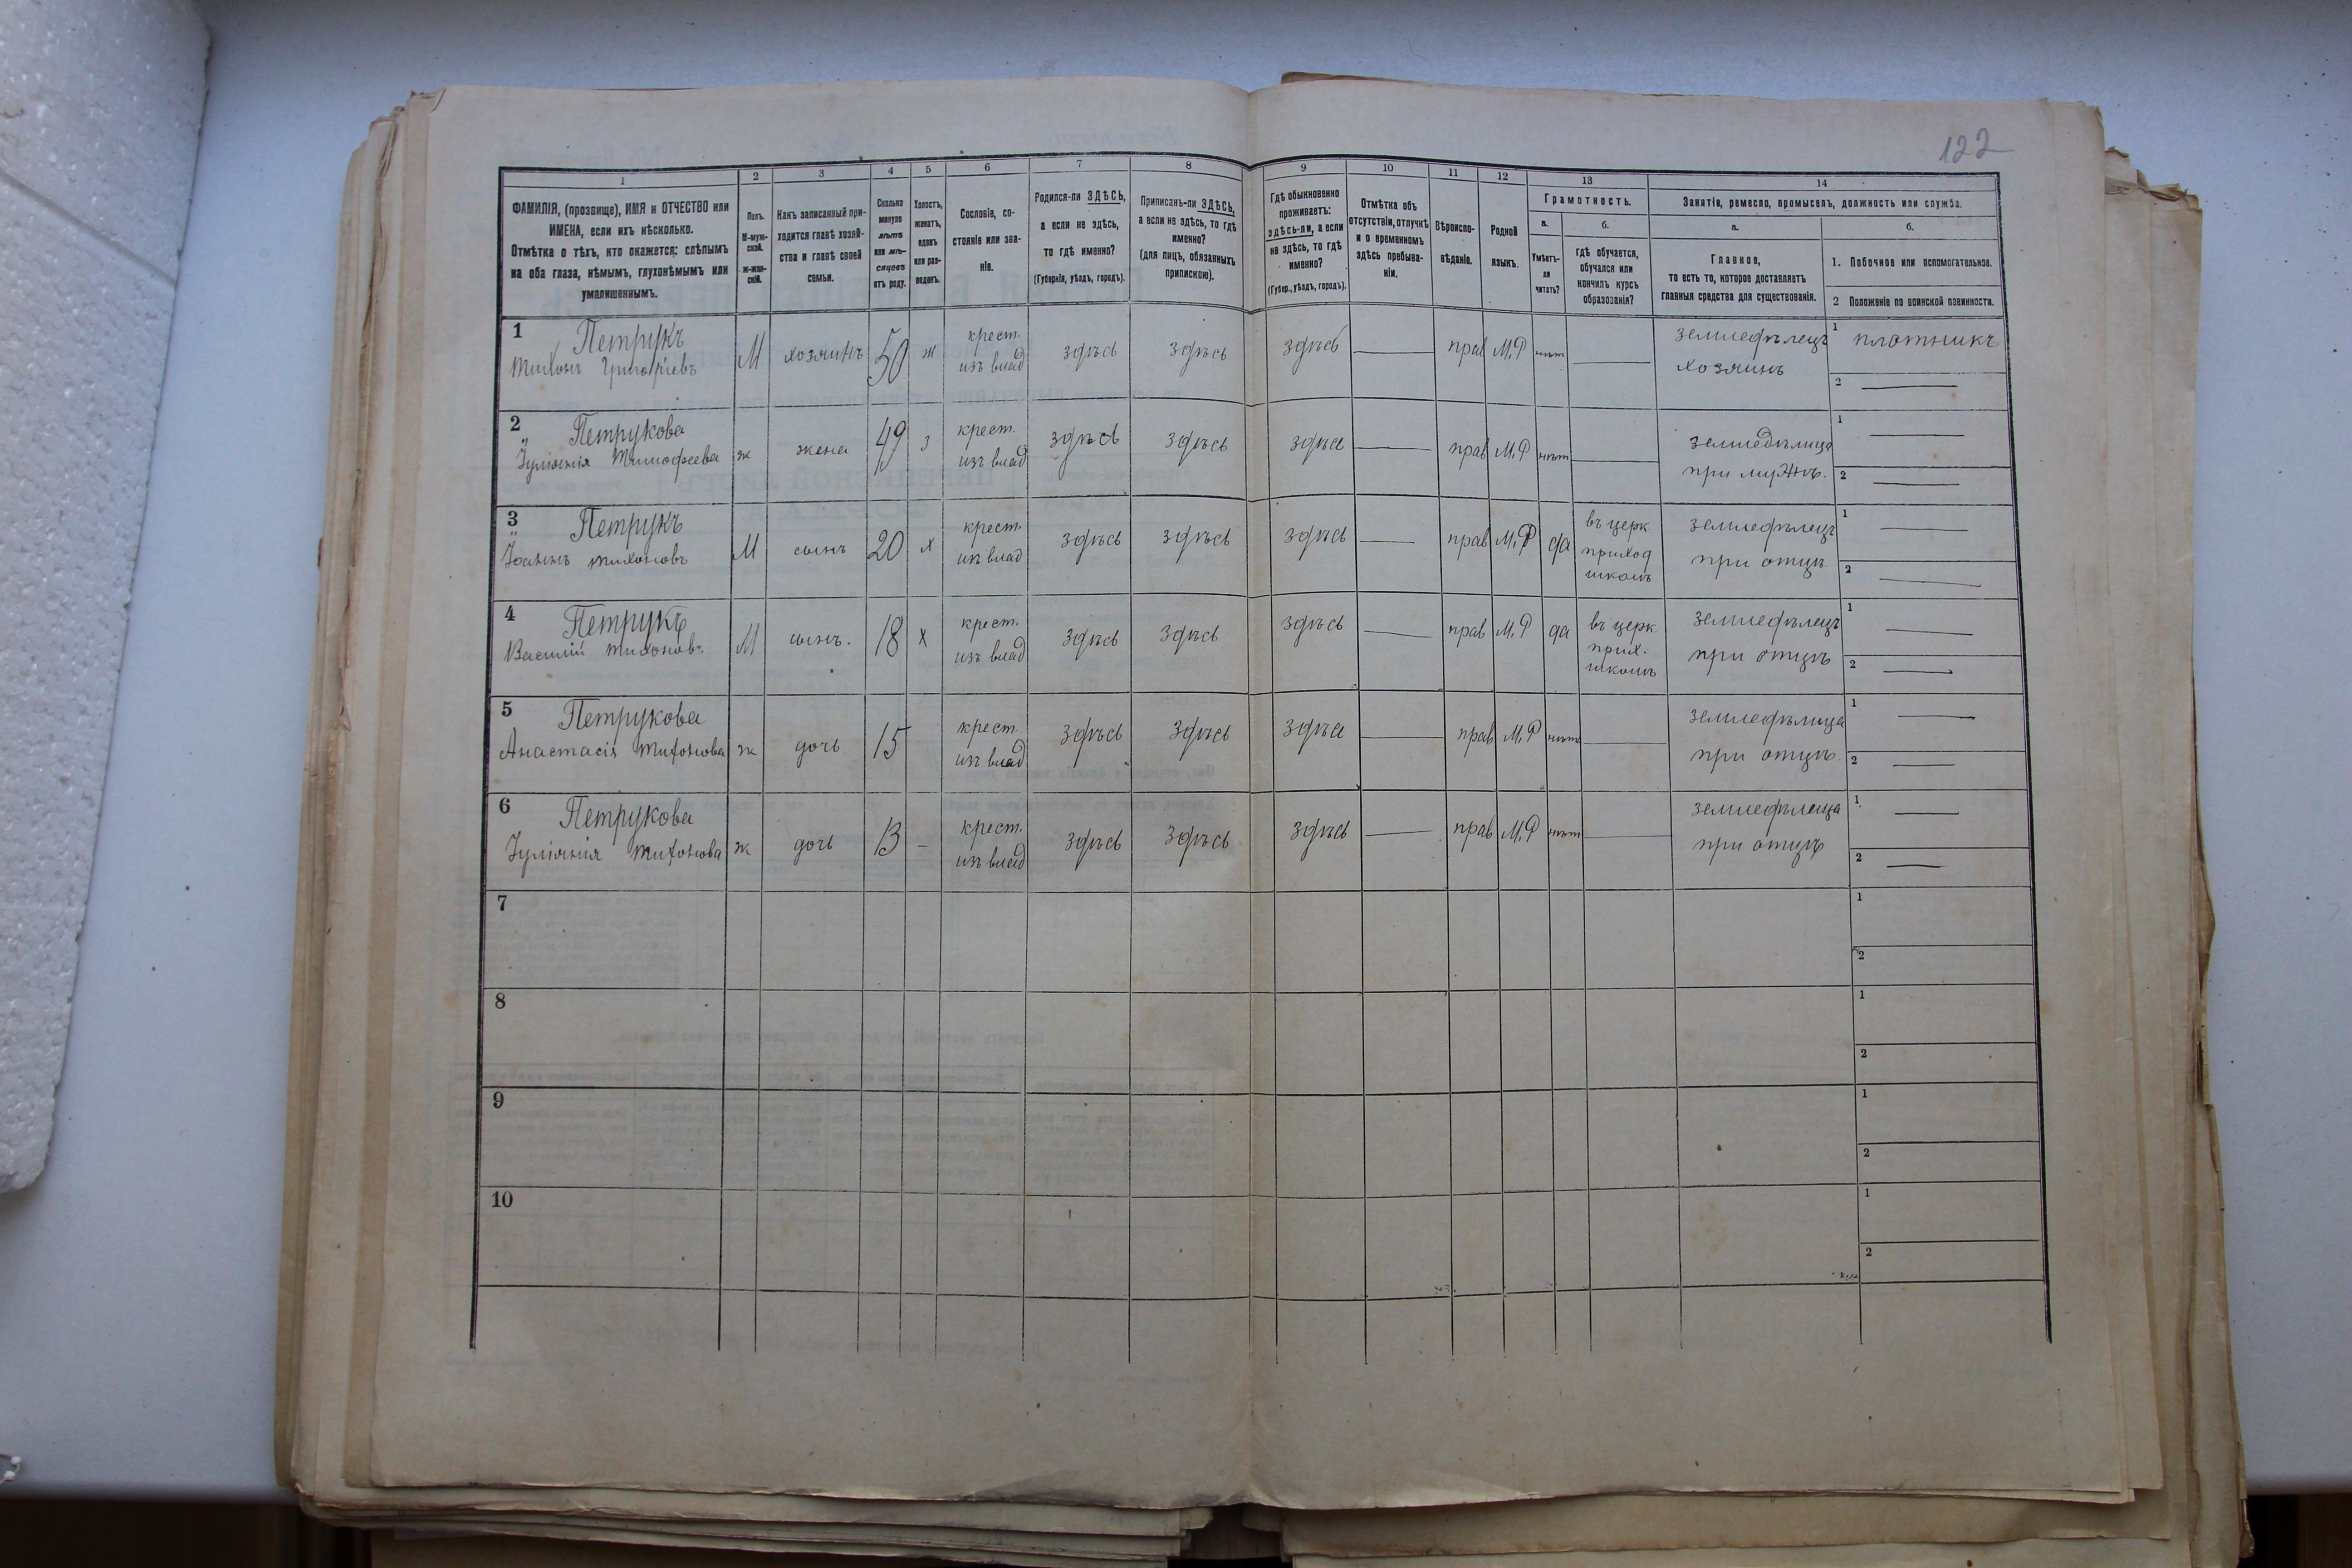 122
1 2 3 4 5 6 7 8 9 10 11 12 13 14
ФАМИЛІЯ, (прозвище), ИМЯ и ОТЧЕСТВО или
ИМЕНА, если ихъ нѣсколько.
Отмѣтка о тѣхъ, кто окажется: слѣпымъ
на оба глаза, нѣмымъ, глухонѣмымъ или
умалишеннымъ.
Полъ.
М-муж-
ской.
ж-жен-
скій.
Какъ записанный при-
ходится главѣ хозяй-
ства и главѣ своей
семьи.
Сколько
минуло
лѣтъ
или мѣ-
сяцевъ
отъ роду.
Холостъ,
женатъ,
вдовъ
или раз-
веденъ.
Сословіе, со-
стояніе или зва-
ніе.
Родился-ли ЗДѢСЬ,
а если не здѣсь,
то гдѣ именно?
(Губернія, уѣздъ, городъ).
Приписанъ-ли ЗДѢСЬ,
а если не здѣсь, то гдѣ
именно?
(для лицъ, обязанныхъ
припискою).
Гдѣ обыкновенно
проживаетъ:
здѣсь-ли, а если
не здѣсь, то гдѣ
именно?
(Губер., уѣздъ, городъ).
Отмѣтка объ
отсутствіи, отлучкѣ
и о временномъ
здѣсь пребыва-
ніи.
Вѣроиспо-
вѣданіе.
Родной
языкъ.
Грамотность.
а.
Умѣетъ-
ли
читать?
б.
Гдѣ обучается,
обучался или
кончилъ курсъ
образованія?
Занятіе, ремесло, промыселъ, должность или служба.
а.
Главное,
то есть то, которое доставляетъ
главныя средства для существованія.
б.
1. Побочное или вспомогательное.
2 Положеніе по воинской повинности.
1 Петрукъ
Тихонъ Григорíевъ М хозяинъ 50 ж крест.
изъ влад здѣсь здѣсь здѣсь — прав М.Р нѣт — земледѣлецъ
хозяинъ 1 плотникъ
2 —
2 Петрукова
Іуліянія Тимофеева ж жена 49 з крест.
изъ влад здѣсь здѣсь здѣсь — прав М.Р нѣт — земледѣлица
при мужѣ. 1 —
2 —
3 Петрукъ
Іоаннъ Тихоновъ М сынъ 20 х крест.
изъ влад здѣсь здѣсь здѣсь — прав М.Р да въ церк
приход
школѣ земледѣлецъ
при отцѣ 1 —
2 —
4 Петрукъ
Василій Тихоновъ М сынъ. 18 х крест.
изъ влад здѣсь здѣсь здѣсь — прав М.Р да въ церк
прих.
школѣ земледѣлецъ
при отцѣ 1 —
2 —
5 Петрукова
Анастасія Тихонова ж дочь 15 крест.
изъ влад здѣсь здѣсь здѣсь — прав М.Р нѣт — земледѣлица
при отцѣ. 1 —
2 —
6 Петрукова
Іуліянія Тихонова ж дочь 13 — крест.
изъ влад здѣсь здѣсь здѣсь — прав М.Р нѣт — земледѣлеца
при отцѣ 1 —
2 —
7 1
2
8 1
2
9 1
2
10 1
2